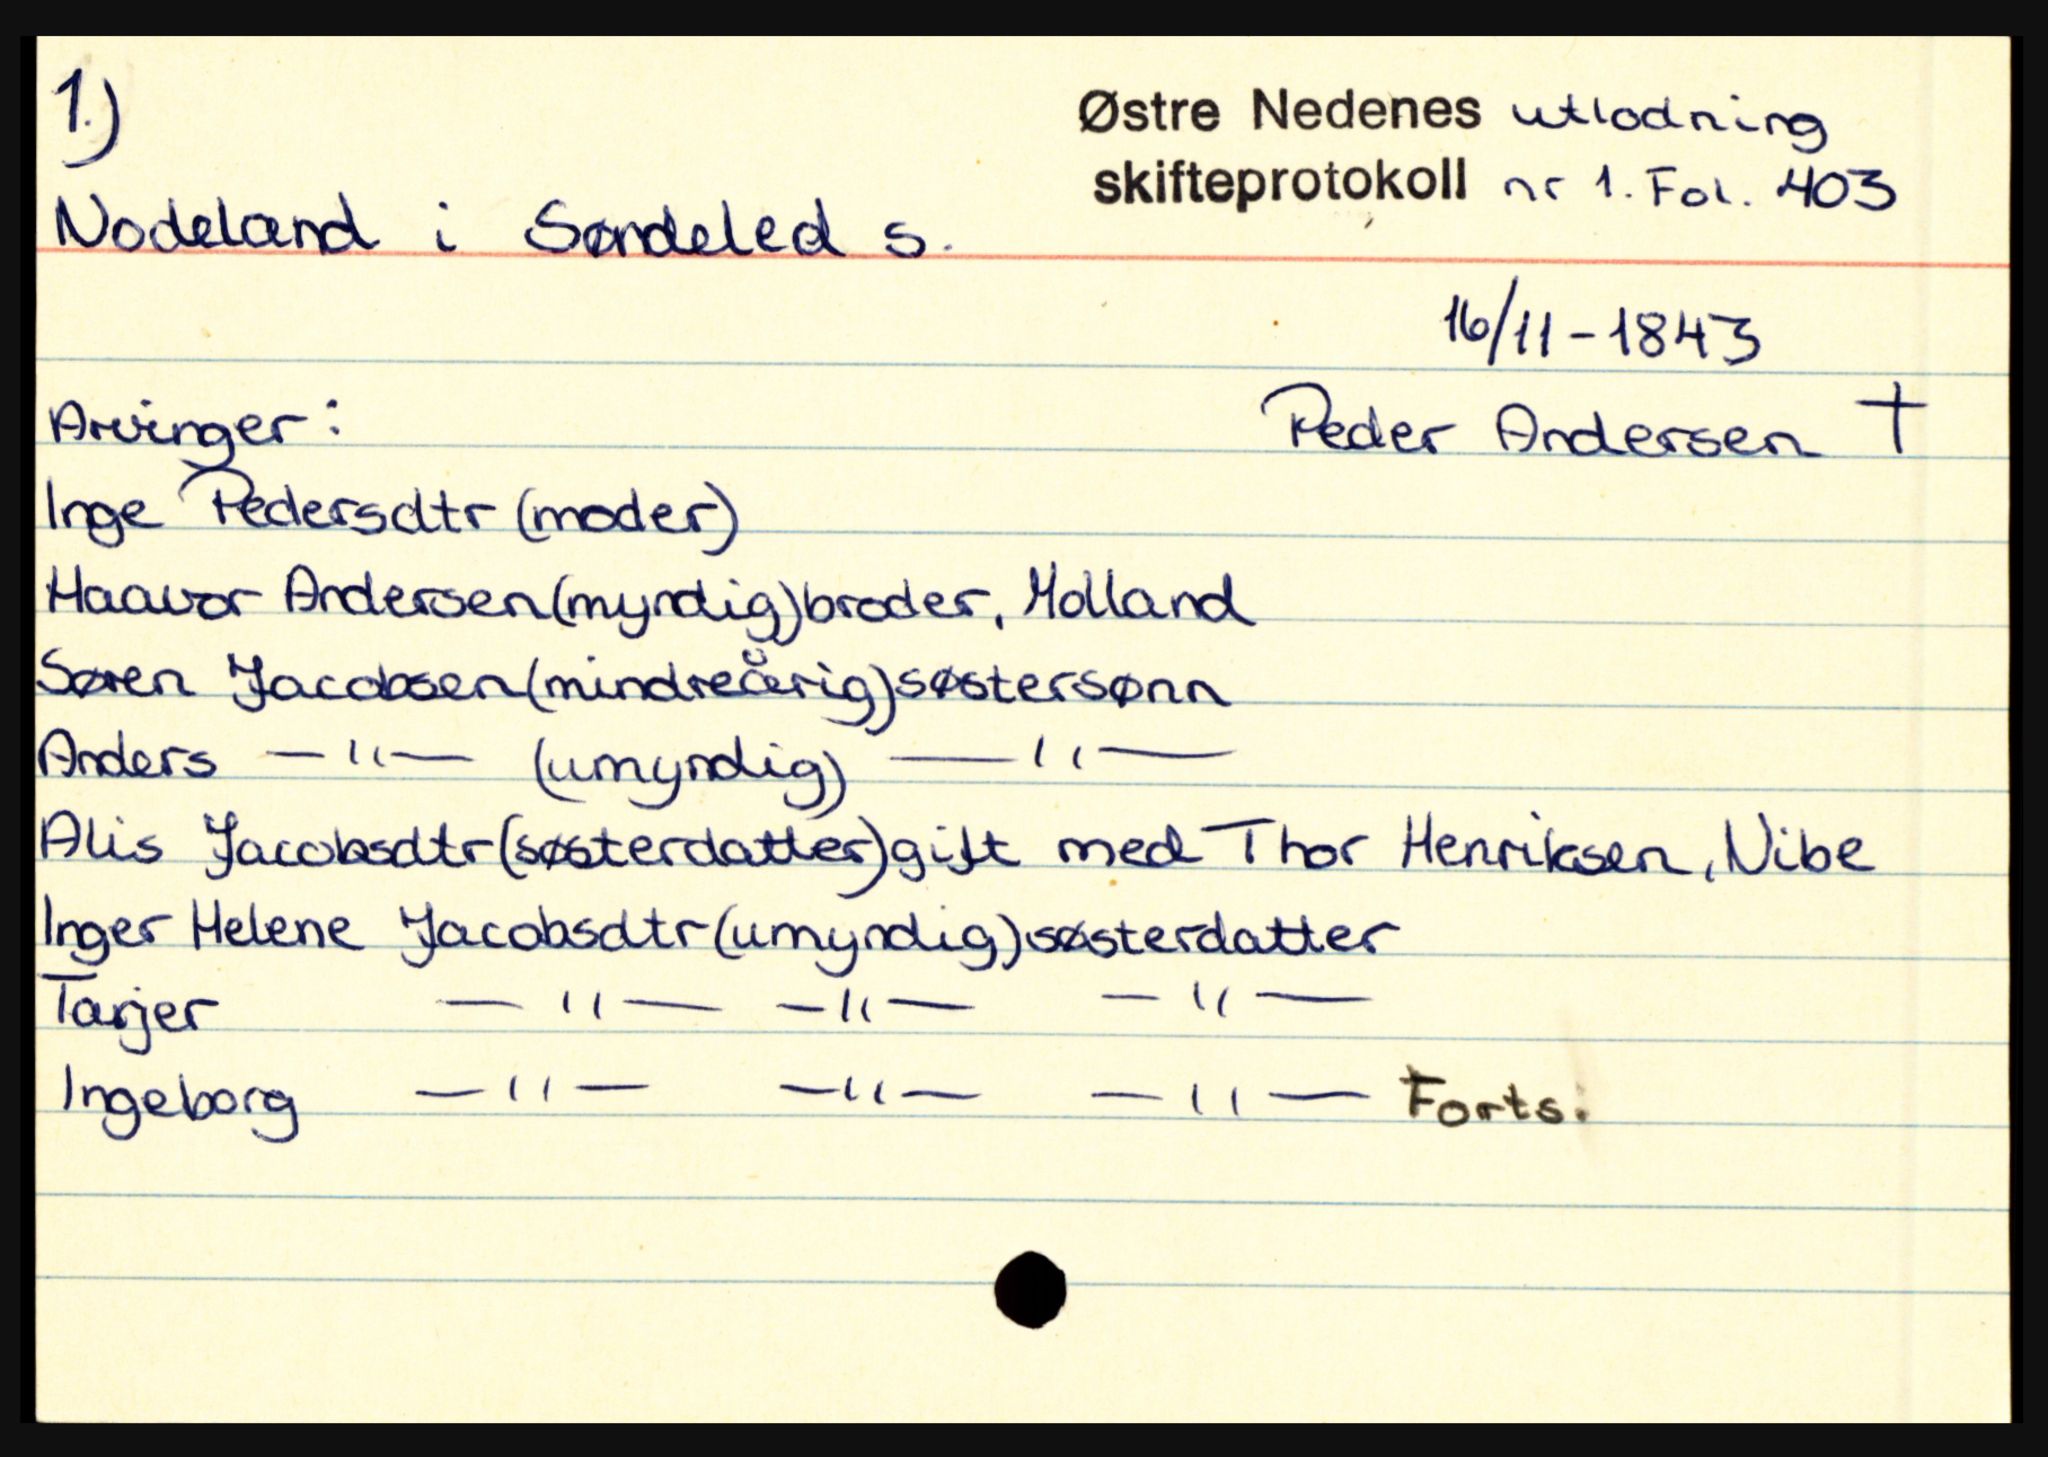 1.)
Østre Nedenes utlodning
skifteprotokoll nr 1. Fol. 403
Nodeland i Søndeled s.
16/11-1843
Peder Andersen †
Arvinger:
Inge Pedersdtr (moder)
Haavor Andersen (myndig) broder, Holland
Søren Jacobsen (mindreårig) søstersønn
Anders —"— (umyndig) —"—
Alis Jacobsdtr (søsterdatter) gift med Thor Henriksen, Nibe
Inger Helene Jacobsdtr (umyndig) søsterdatter
Tarjer —"— —"— —"—
Ingeborg —"— —"— —"— Forts.